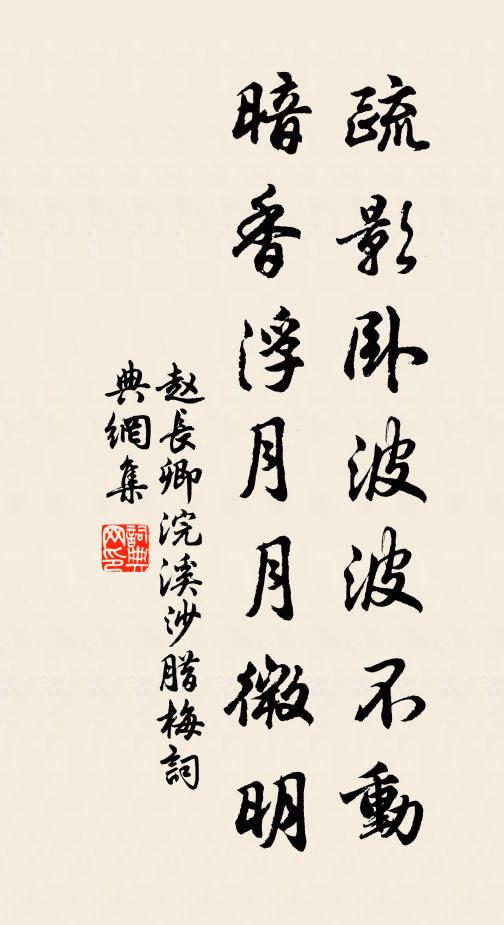 疏影卧波波不動
暗香浮月月微明
赵長卿浣溪沙腊梅詞
典網集
詞典網印